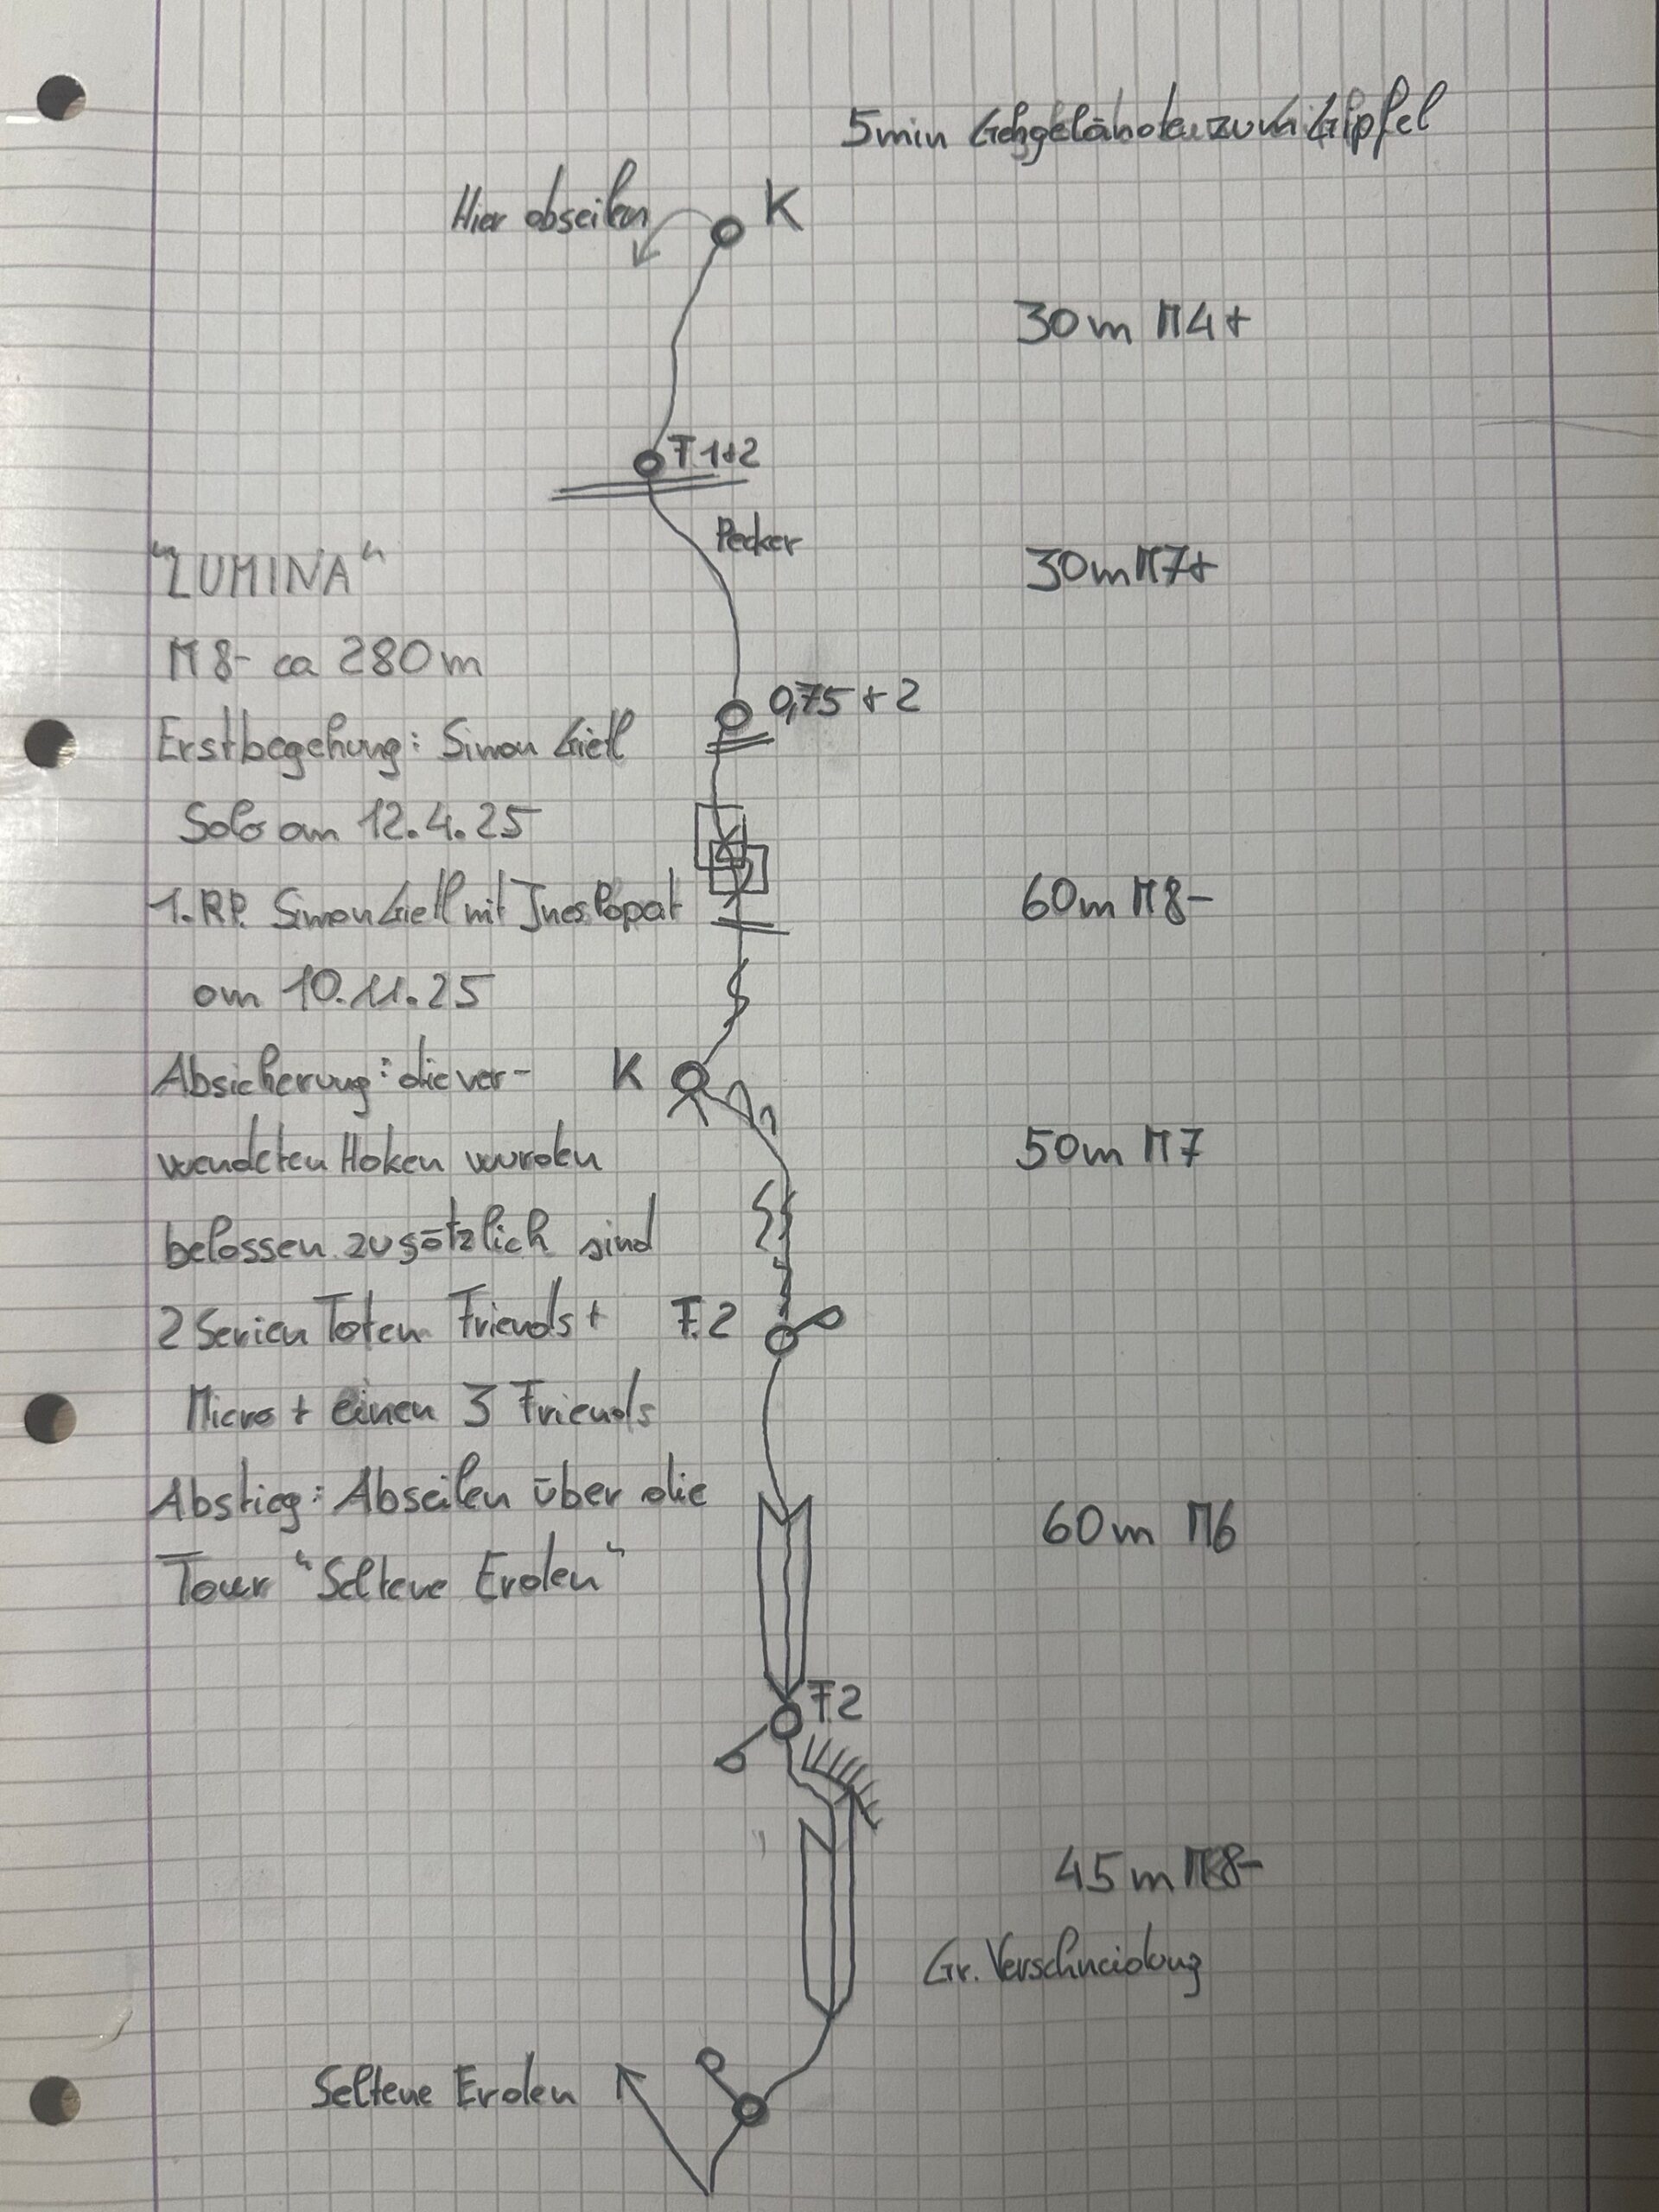 5min Gehgelände zum Gipfel
Hier abseilen
K
30m M4+
F. 1+2
Pecker
30m M7+
"LUMINA"
M8- ca 280m
0,75 + 2
Erstbegehung: Simon Gietl
Solo am 12.4.25
1. RP. Simon Gietl mit Ines Papat
60m M8-
am 10.11.25
Absicherung: die ver-
K
wendeten Haken wurden
50m M7
belassen zusätzlich sind
2 Serien Toten Friends +
F.2
Micro + einen 3 Friends
Abstieg: Abseilen über die
60m M6
Tour "Seltene Erden"
F.2
45m M8-
Gr. Verschneidung
Seltene Erden